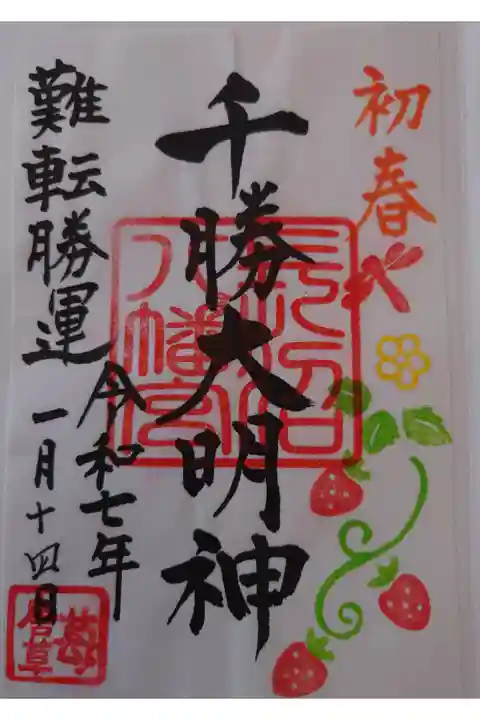 初春
千勝大明神
長沼
八幡宮
難転勝運
令和七年
一月十四日
苺